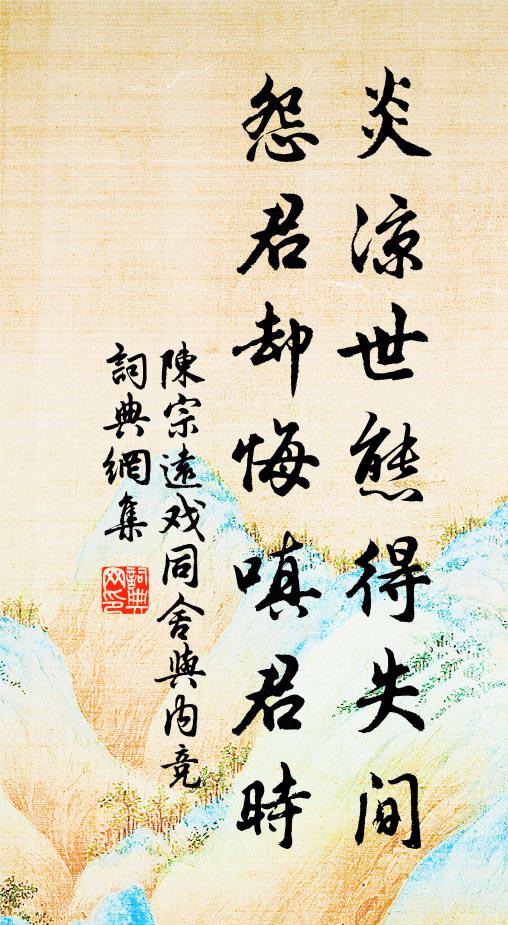 炎凉世態得失間
怨君却悔嗔君時
陳宗遠戏同舍與内竞
詞典網集
詞典網印